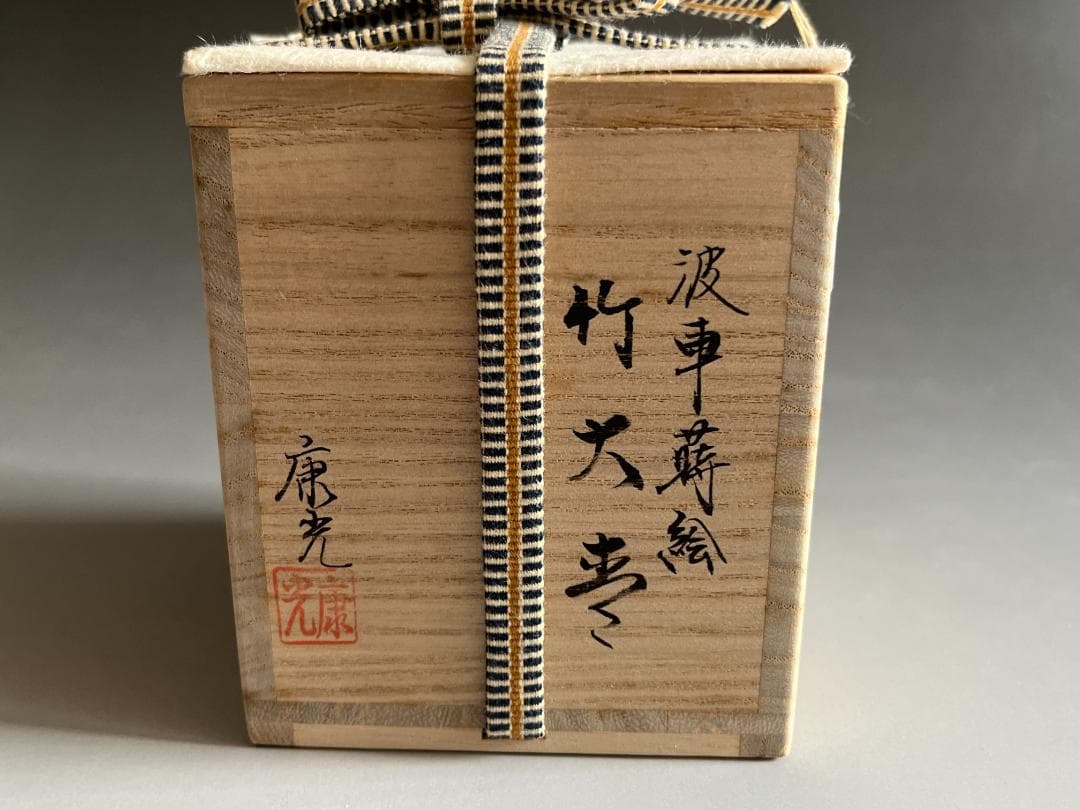 波車蒔絵
竹大棗
康光
康光